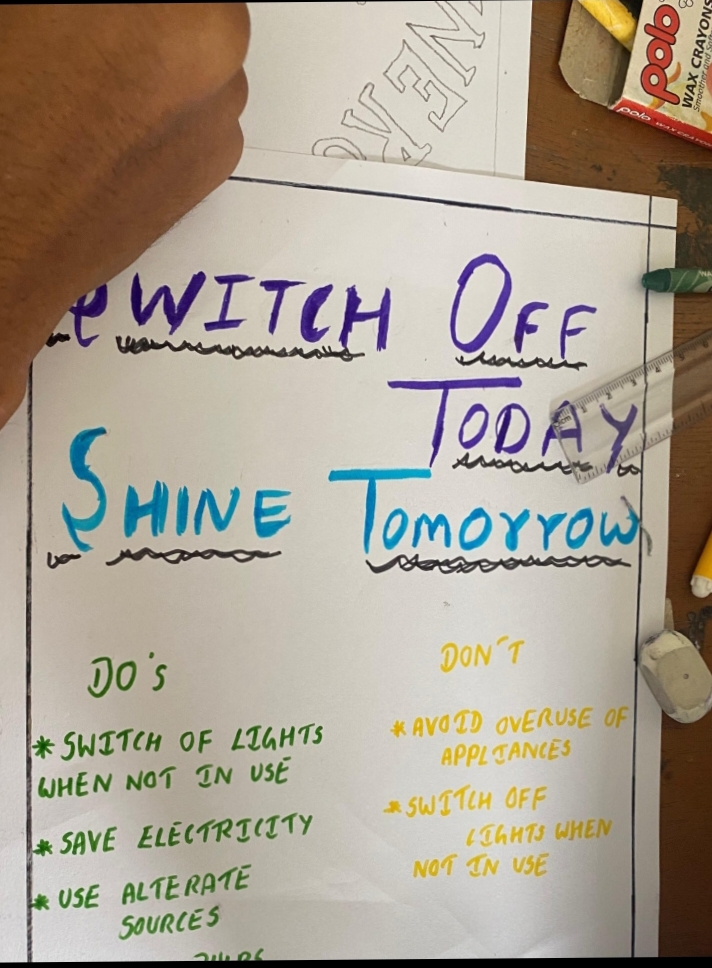 polo
WAX CRAYONS
polo
SWITCH OFF
TODAY
SHINE TOMORROW
DO's
DON'T
* SWITCH OF LIGHTS
WHEN NOT IN USE
* SAVE ELECTRICITY
* USE ALTERATE
SOURCES
* AVOID OVERUSE OF
APPLIANCES
* SWITCH OFF
LIGHTS WHEN
NOT IN USE